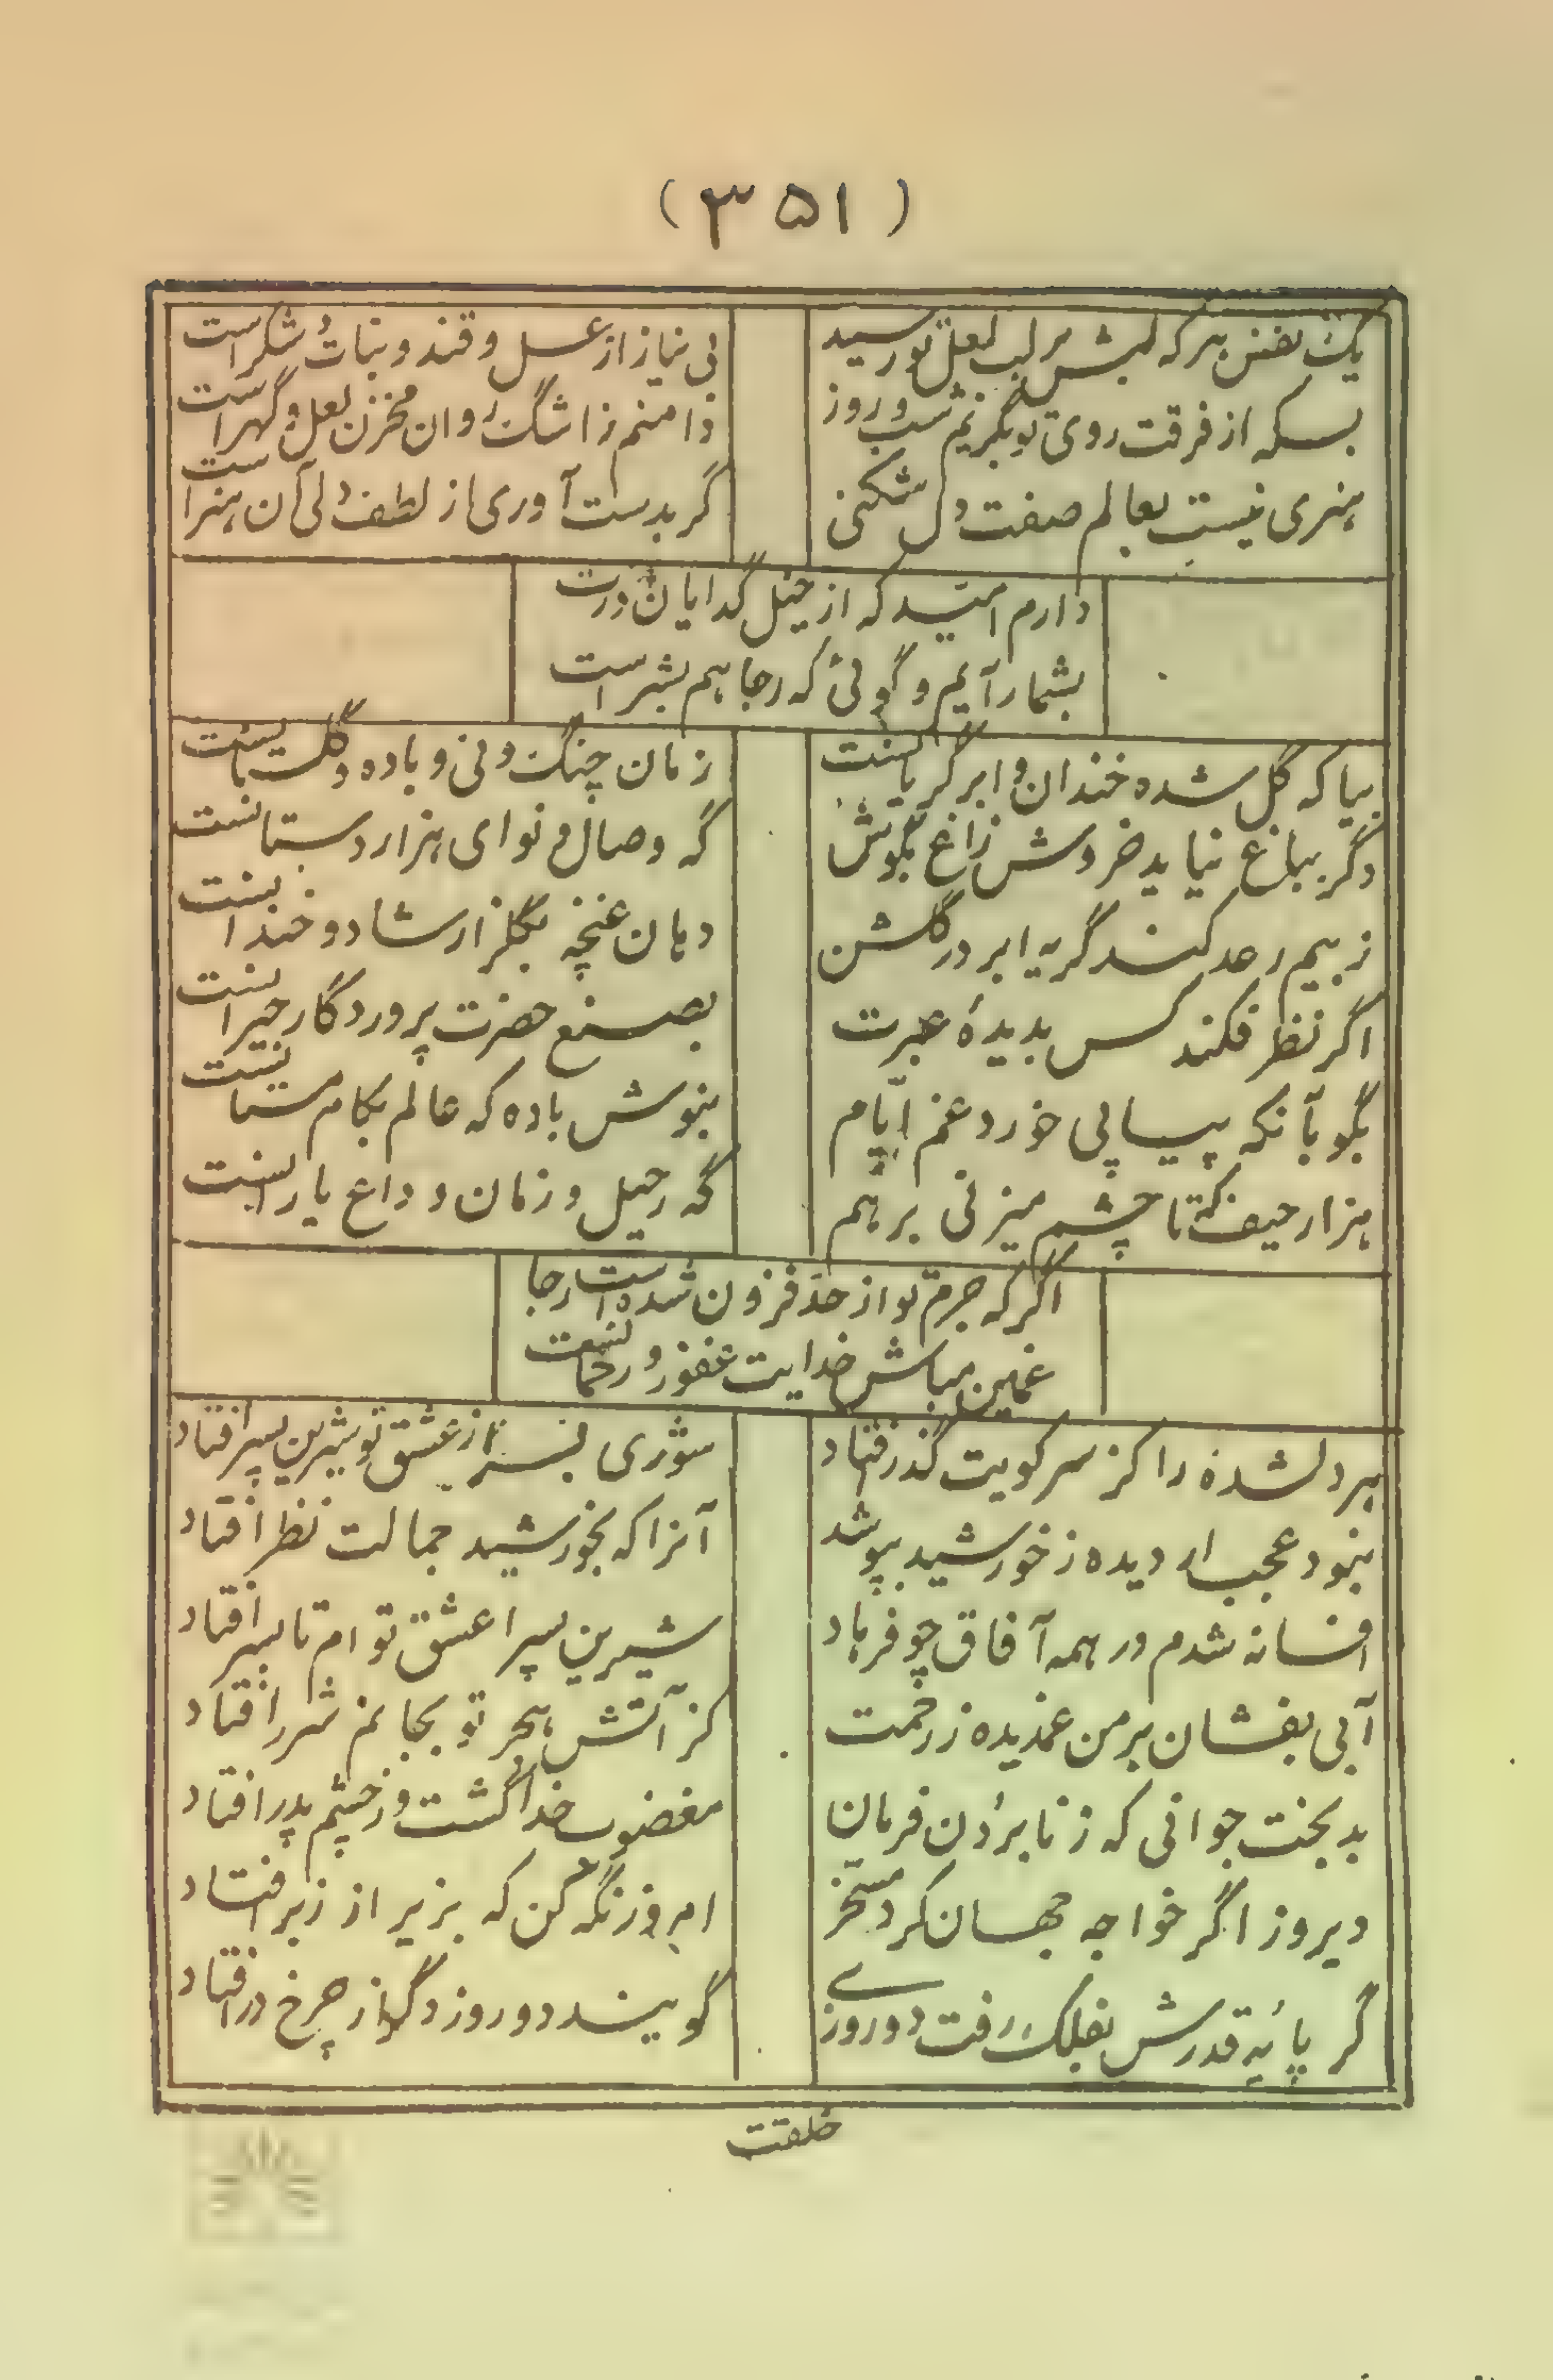 (۳۵۱)
یک نفس هرکه لبش بر لب لعل تو رسید
بی نیاز از عسل و قند و نبات شکر است
بسکه از فرقت روی تو بگریم شب و روز
دامنم ز اشک روان مخزن لعل و گهر است
هنری نیست بعالم صفت دل شکنی
گر بدست آوری از لطف دلی آن هنر است
دارم امید که از خیل گدایان درت
بشمار آیم و گوئی که رجا هم بشر است
بیا که گل شده خندان و ابر گریانست
زمان چنگ و نی و باده و گلستانست
دگر بباغ نیاید خروش زاغ بگوش
گه وصال و نوای هزار دستانست
ز بیم رعد کند گریه ابر در گلشن
دهان غنچه بگلزار شاد و خندانست
اگر نظر فکند کس بدیدهٔ عبرت
بصنع حضرت پروردگار حیرانست
بگو بآنکه پیاپی خورد غم ایّام
بنوش باده که عالم بکام مستانست
هزار حیف که تا چشم میزنی برهم
گه رحیل و زمان وداع یارانست
اگر که جرم تو از حد فزون شده است رجا
غمین مباش خدایت غفور و رحمانست
هر دلشده را کز سر کویت گذر افتاد
شوری بسر از عشق تو شیرین پسر افتاد
نبود عجب ار دیده ز خورشید بپوشد
آنرا که بخورشید جمالت نظر افتاد
افسانه شدم در همه آفاق چو فرهاد
شیرین پسرا عشق توام تا بسر افتاد
آبی بفشان بر من غمدیده ز رحمت
کز آتش هجر تو بجانم شرر افتاد
بدبخت جوانی که ز نابردن فرمان
مغضوب خدا گشت و ز چشم پدر افتاد
دیروز اگر خواجه جهان کرد مسخر
امروز نگه کن که بزیر از زبر افتاد
گر پائۀ قدرش بفلک رفت دو روزے
گویند دو روز دگر از چرخ در افتاد
خلقت